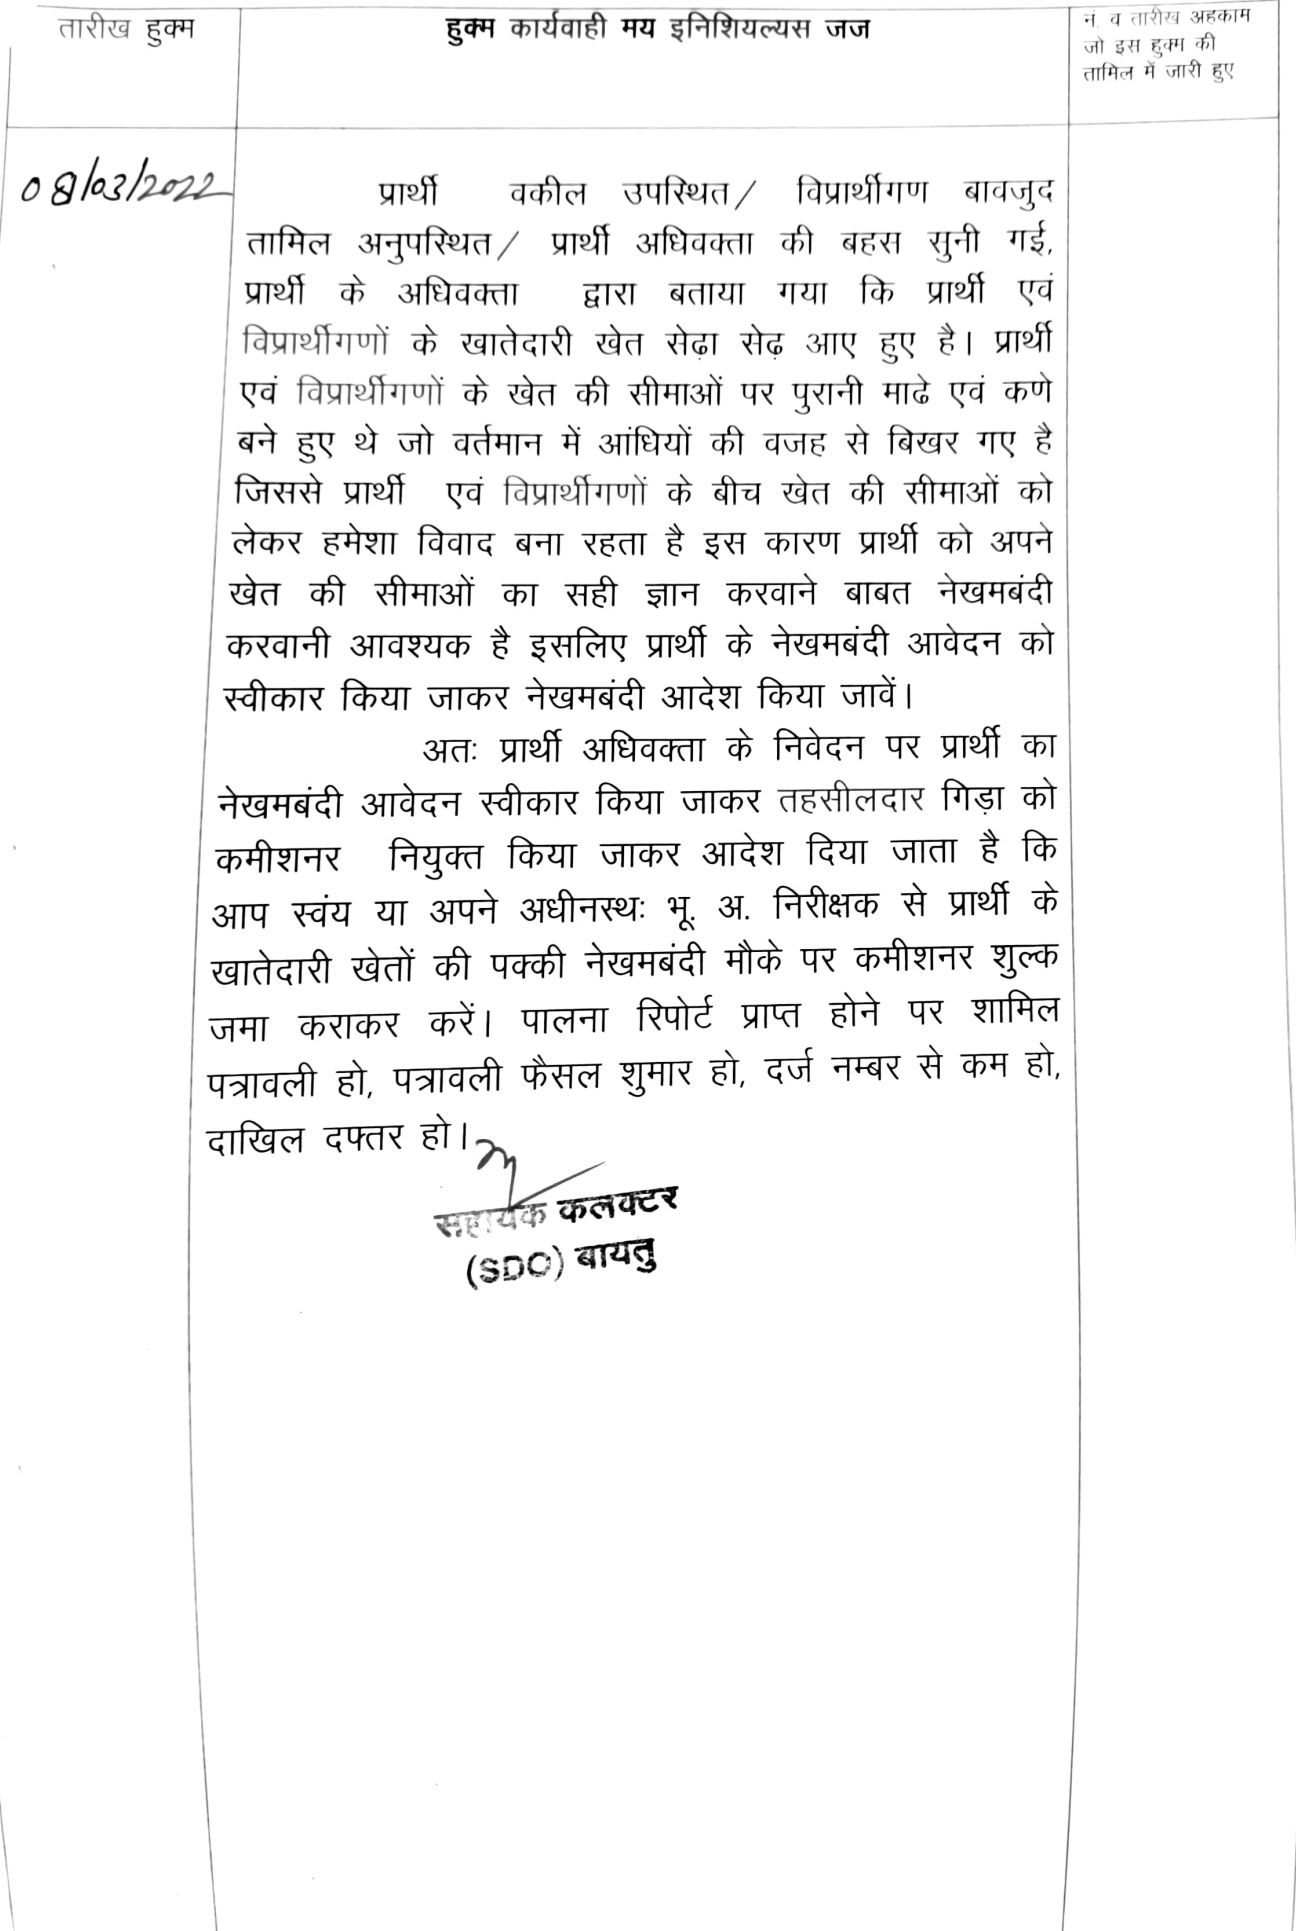 तारीख हुक्म
हुक्म कार्यवाही मय इनिशियल्यस जज
नं. व तारीख अहकाम
जो इस हुक्म की
तामिल में जारी हुए
08/03/2022
प्रार्थी वकील उपस्थित/ विप्रार्थीगण बावजुद
तामिल अनुपस्थित/ प्रार्थी अधिवक्ता की बहस सुनी गई,
प्रार्थी के अधिवक्ता द्वारा बताया गया कि प्रार्थी एवं
विप्रार्थीगणों के खातेदारी खेत सेढ़ा सेढ़ आए हुए है। प्रार्थी
एवं विप्रार्थीगणों के खेत की सीमाओं पर पुरानी माढे एवं कणे
बने हुए थे जो वर्तमान में आंधियों की वजह से बिखर गए है
जिससे प्रार्थी एवं विप्रार्थीगणों के बीच खेत की सीमाओं को
लेकर हमेशा विवाद बना रहता है इस कारण प्रार्थी को अपने
खेत की सीमाओं का सही ज्ञान करवाने बाबत नेखमबंदी
करवानी आवश्यक है इसलिए प्रार्थी के नेखमबंदी आवेदन को
स्वीकार किया जाकर नेखमबंदी आदेश किया जावें।
अतः प्रार्थी अधिवक्ता के निवेदन पर प्रार्थी का
नेखमबंदी आवेदन स्वीकार किया जाकर तहसीलदार गिड़ा को
कमीशनर नियुक्त किया जाकर आदेश दिया जाता है कि
आप स्वंय या अपने अधीनस्थः भू. अ. निरीक्षक से प्रार्थी के
खातेदारी खेतों की पक्की नेखमबंदी मौके पर कमीशनर शुल्क
जमा कराकर करें। पालना रिपोर्ट प्राप्त होने पर शामिल
पत्रावली हो, पत्रावली फैसल शुमार हो, दर्ज नम्बर से कम हो,
दाखिल दफ्तर हो।
सहायक कलक्टर
(SDO) बायतु